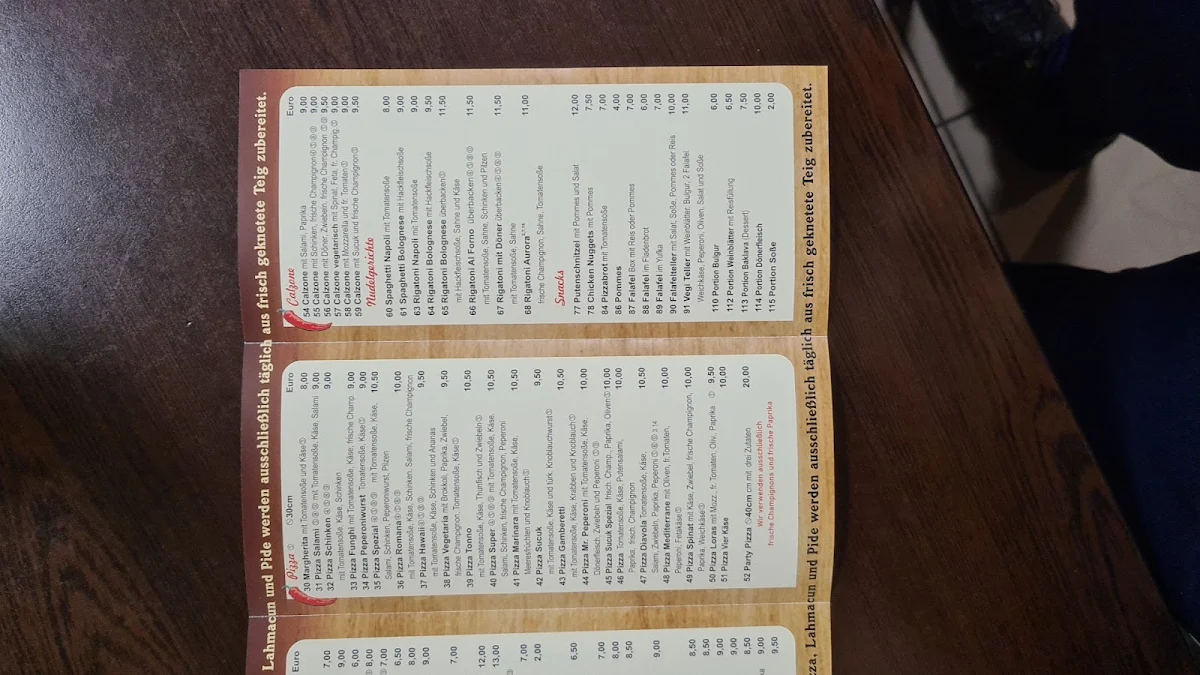 Lahmacun und Pide werden ausschließlich täglich aus frisch geknetete Teig zubereitet.
Euro
7,00
9,00
6,00
8,00
7,00
6,50
8,00
9,00
7,00
12,00
13,00
7,00
2,00
6,50
7,00
8,00
8,50
9,00
8,50
8,50
9,00
9,00
8,50
9,00
9,50
Pizza ∅30cm Euro
30 Margherita mit Tomatensoße und Käse 8,00
31 Pizza Salami mit Tomatensoße, Käse, Salami 9,00
32 Pizza Schinken 9,00
mit Tomatensoße, Käse, Schinken
33 Pizza Funghi mit Tomatensoße, Käse, frische Champ. 9,00
34 Pizza Peperoniwurst Tomatensoße, Käse 9,00
35 Pizza Spezial mit Tomatensoße, Käse, 10,50
Salami, Schinken, Peperoniwurst, Pilzen
36 Pizza Roma 10,00
mit Tomatensoße, Käse, Schinken, Salami, frische Champignon
37 Pizza Hawaii 9,50
mit Tomatensoße, Käse, Schinken und Ananas
38 Pizza Vegetaria mit Brokkoli, Paprika, Zwiebel, 9,50
frische Champignon, Tomatensoße, Käse
39 Pizza Tonno 10,50
mit Tomatensoße, Käse, Thunfisch und Zwiebeln
40 Pizza Super mit Tomatensoße, Käse, 10,50
Salami, Schinken, frische Champignon, Peperoni
41 Pizza Marinara mit Tomatensoße, Käse, 10,50
Meeresfrüchten und Knoblauch
42 Pizza Sucuk 9,50
mit Tomatensoße, Käse und türk. Knoblauchwurst
43 Pizza Gamberetti 10,50
mit Tomatensoße, Käse, Krabben und Knoblauch
44 Pizza Mr. Peperoni mit Tomatensoße, Käse, 10,00
Dönerfleisch, Zwiebeln und Peperoni
45 Pizza Sucuk Spezial frisch. Champ., Paprika, Oliven 10,00
46 Pizza Tomatensoße, Käse, Putensalami, 10,00
Paprika, frisch. Champignon
47 Pizza Diavola Tomatensoße, Käse, 10,50
Salami, Zwiebeln, Paprika, Peperoni
48 Pizza Mediterrane mit Oliven, fr.Tomaten, 10,00
Peperoni, Fetakäse
49 Pizza Spinat mit Käse, Zwiebel, frische Champignon, 10,00
Paprika, Weichkäse
50 Pizza Loras mit Mozz., fr. Tomaten, Oliv., Paprika 9,50
51 Pizza Vier Käse 10,00
52 Party Pizza ∅40cm cm mit drei Zutaten 20,00
Wir verwenden ausschliesslich
frische Champignons und frische Paprika
Calzone Euro
54 Calzone mit Salami, Paprika 9,00
55 Calzone mit Schinken, frische Champignon 9,00
56 Calzone mit Döner, Zwiebeln, frische Champignon 9,50
57 Calzone vegetarisch mit Spinat, Feta, fr. Champig. 9,00
58 Calzone mit Mozzarella und fr. Tomaten 9,00
59 Calzone mit Sucuk und frische Champignon 9,50
Nudelgerichte
60 Spaghetti Napoli mit Tomatensoße 8,00
61 Spaghetti Bolognese mit Hackfleischsoße 9,00
63 Rigatoni Napoli mit Tomatensoße 9,00
64 Rigatoni Bolognese mit Hackfleischsoße 9,50
65 Rigatoni Bolognese überbacken 11,50
mit Hackfleischsoße, Sahne und Käse
66 Rigatoni Al Forno überbacken 11,50
mit Tomatensoße, Sahne, Schinken und Pilzen
67 Rigatoni mit Döner überbacken 11,50
mit Tomatensoße, Sahne
68 Rigatoni Aurora 11,00
frische Champignon, Sahne, Tomatensoße
Snacks
77 Putenschnitzel mit Pommes und Salat 12,00
78 Chicken Nuggets mit Pommes 7,50
84 Pizzabrot mit Tomatensoße 7,00
86 Pommes 4,00
87 Falafel Box mit Reis oder Pommes 7,00
88 Falafel im Fladenbrot 6,00
89 Falafel im Yufka 7,00
90 Falafelteller mit Salat, Soße, Pommes oder Reis 10,00
91 Vegi Teller mit Weinblätter, Bulgur, 2 Falafel 11,00
Weichkäse, Peperoni, Oliven, Salat und Soße
110 Portion Bulgur 6,00
112 Portion Weinblätter mit Reisfüllung 6,50
113 Portion Baklava (Dessert) 7,50
114 Portion Dönerfleisch 10,00
115 Portion Soße 2,00
zza, Lahmacun und Pide werden ausschließlich täglich aus frisch geknetete Teig zubereitet.